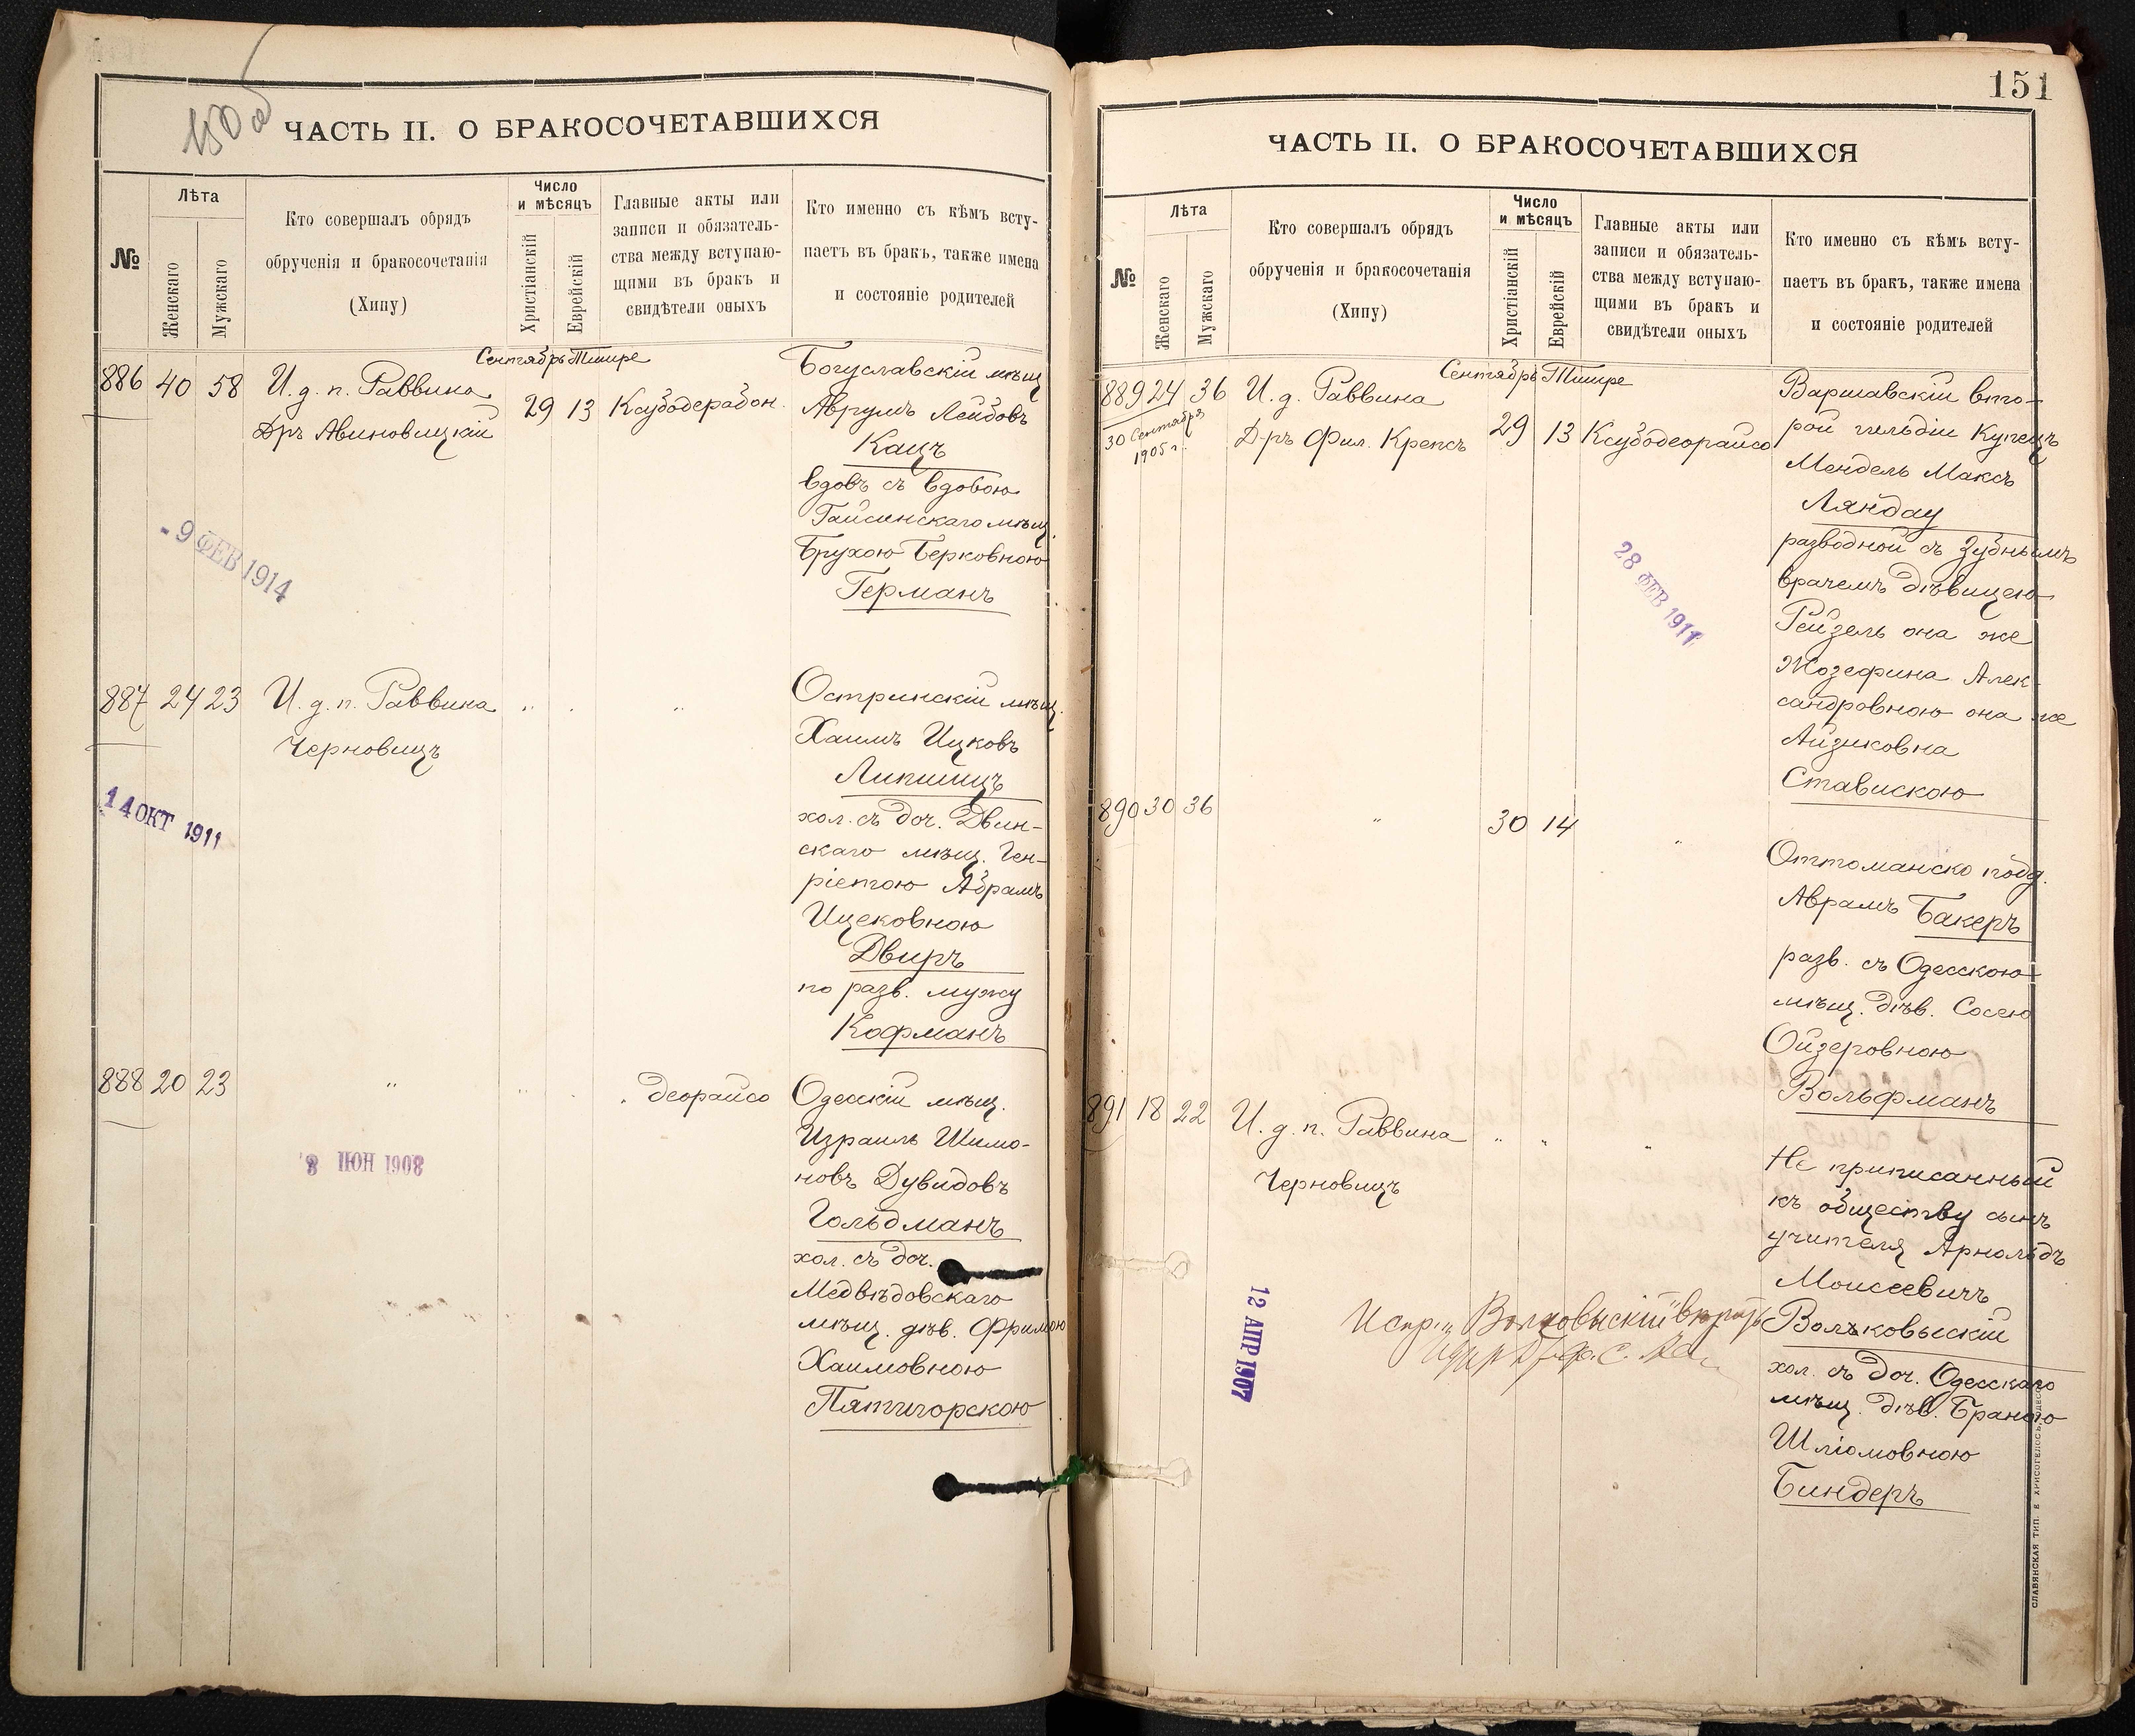 150 об
ЧАСТЬ II. О БРАКОСОЧЕТАВШИХСЯ
№
Лѣта
Женскаго
Мужскаго
Кто совершалъ обрядъ
обрученія и бракосочетанія
(Хипу)
Число
и мѣсяцъ
Христіанскій
Еврейскій
Главные акты или
записи и обязатель-
ства между вступаю-
щими въ бракъ и
свидѣтели оныхъ
Кто именно съ кѣмъ всту-
паетъ въ бракъ, также имена
и состояніе родителей
Сентябрь Тишре
886 40 58
И. д. п. Раввина
Дръ Авиновицкій
29 13
Ксубодерабон.
Богуславскій мѣщ
Аврумъ Лейбовъ
Кацъ
вдовъ съ вдовою
Гайсинскаго мѣщ.
Брухою Берковною
Германъ
- 9 ФЕВ 1914
887 24 23
И. д. п. Раввина
Черновицъ
" " "
Остринскій мѣщ.
Хаимъ Ицковъ
Липшицъ
хол. съ доч. Двин-
скаго мѣщ. Ген-
ріетою Абрамъ
Ицековною
Двиръ
по разв. мужу
Кофманъ
14 ОКТ 1911
888 20 23
"
" "
" деорайсо
Одесскій мѣщ.
Израиль Шимо-
новъ Дувидовъ
Гольдманъ
хол. съ доч.
Медвѣдовскаго
мѣщ. дѣв. Фримою
Хаимовною
Пятигорскою
8 ІЮН 1908
151
ЧАСТЬ II. О БРАКОСОЧЕТАВШИХСЯ
№
Лѣта
Женскаго
Мужскаго
Кто совершалъ обрядъ
обрученія и бракосочетанія
(Хипу)
Число
и мѣсяцъ
Христіанскій
Еврейскій
Главные акты или
записи и обязатель-
ства между вступаю-
щими въ бракъ и
свидѣтели оныхъ
Кто именно съ кѣмъ всту-
паетъ въ бракъ, также имена
и состояніе родителей
Сентябрь Тишре
889 24 36
30 Сентября
1905 г.
И. д. Раввина
Д-ръ Фил. Крепсъ
29 13
Ксубодеорайсо
Варшавскій вто-
рой гильдіи Купецъ
Мендель Максъ
Ляндау
разводной съ Зубнымъ
врачемъ дѣвицею
Рейзель она же
Жозефина Алек-
сандровною она же
Айзиковна
Ставискою
28 ФЕВ 1911
890 30 36
"
30 14
"
Оттоманско подд.
Аврамъ Бакеръ
разв. съ Одесскою
мѣщ. дѣв. Сосею
Ойзеровною
Вольфманъ
891 18 22
И. д. п. Раввина
Черновицъ
" " "
Не приписанный
къ обществу сынъ
учителя Арнольдъ
Моисеевичъ
Волковыскій
хол. съ доч. Одесскаго
мѣщ. дѣв. Браною
Шліомовною
Биндеръ
12 АПР 1907
Волковыскій
СЛАВЯНСКАЯ ТИП. Е. ХРИСОГЕЛОСЪ, ОДЕССА